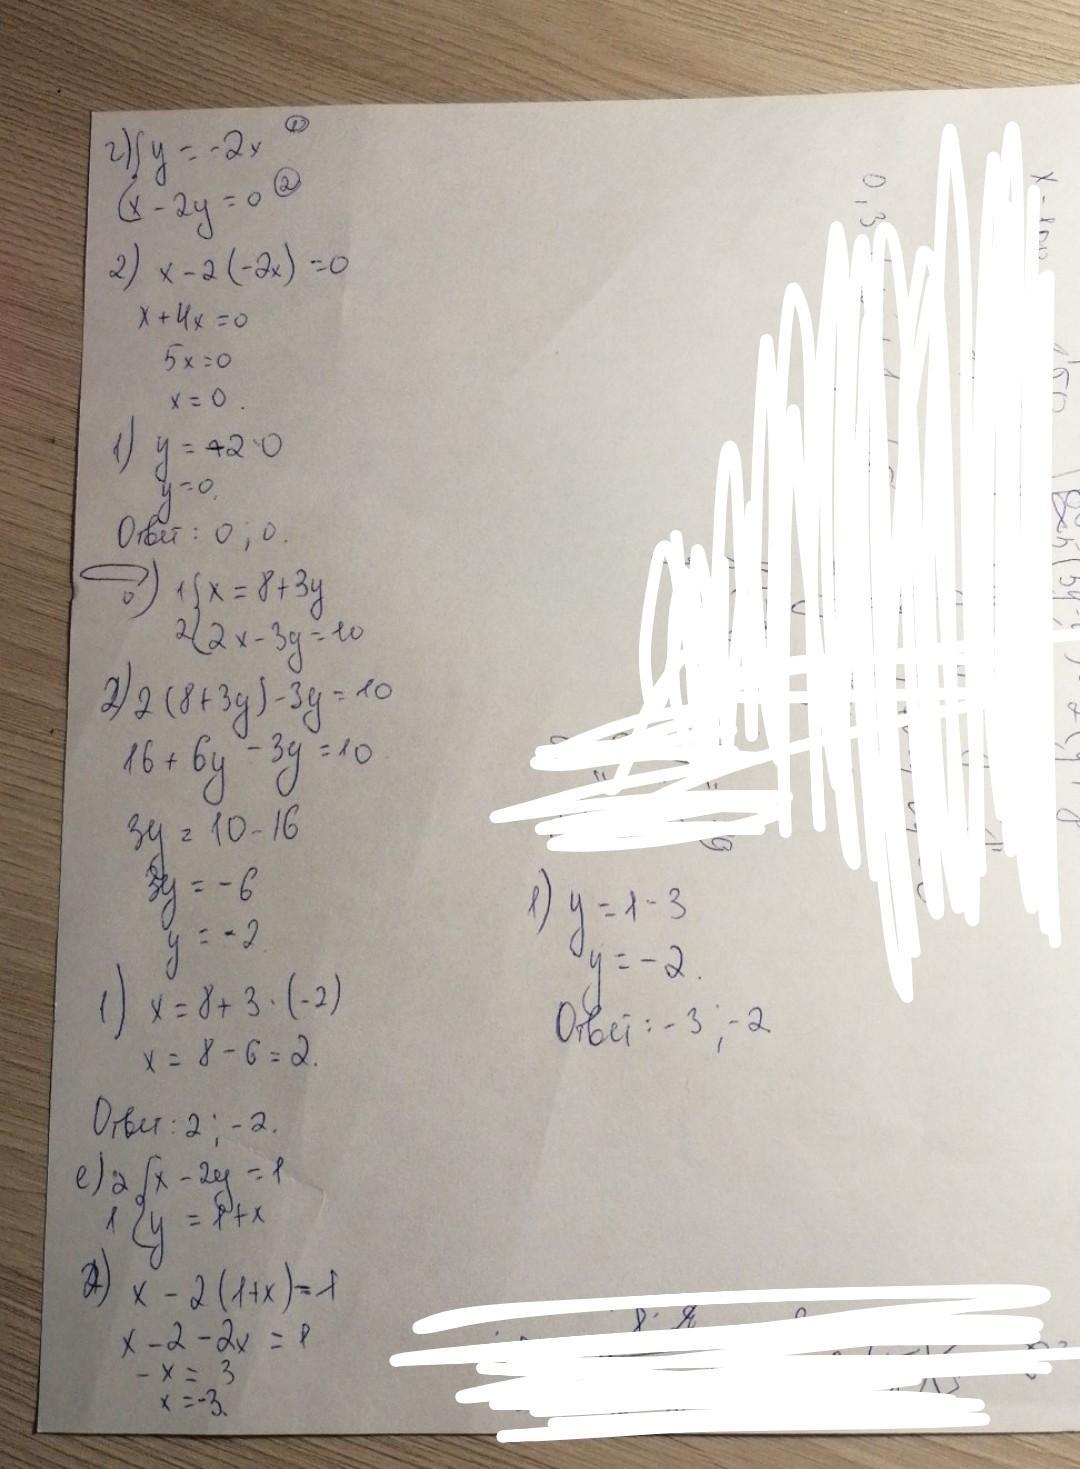 г) { y = -2x ①
x - 2y = 0 ②
2) x - 2 (-2x) = 0
x + 4x = 0
5x = 0
x = 0.
1) y = -2·0
y = 0.
Ответ: 0 ; 0.
1 { x = 8 + 3y
2 { 2x - 3y = 10
2) 2 (8 + 3y) - 3y = 10
16 + 6y - 3y = 10
3y = 10 - 16
3y = -6
y = -2.
1) x = 8 + 3 · (-2)
x = 8 - 6 = 2.
Ответ: 2 ; -2.
е) 2 { x - 2y = 1
1 { y = 1 + x
2) x - 2 (1 + x) = 1
x - 2 - 2x = 1
-x = 3
x = -3.
1) y = 1 - 3
y = -2.
Ответ: -3 ; -2